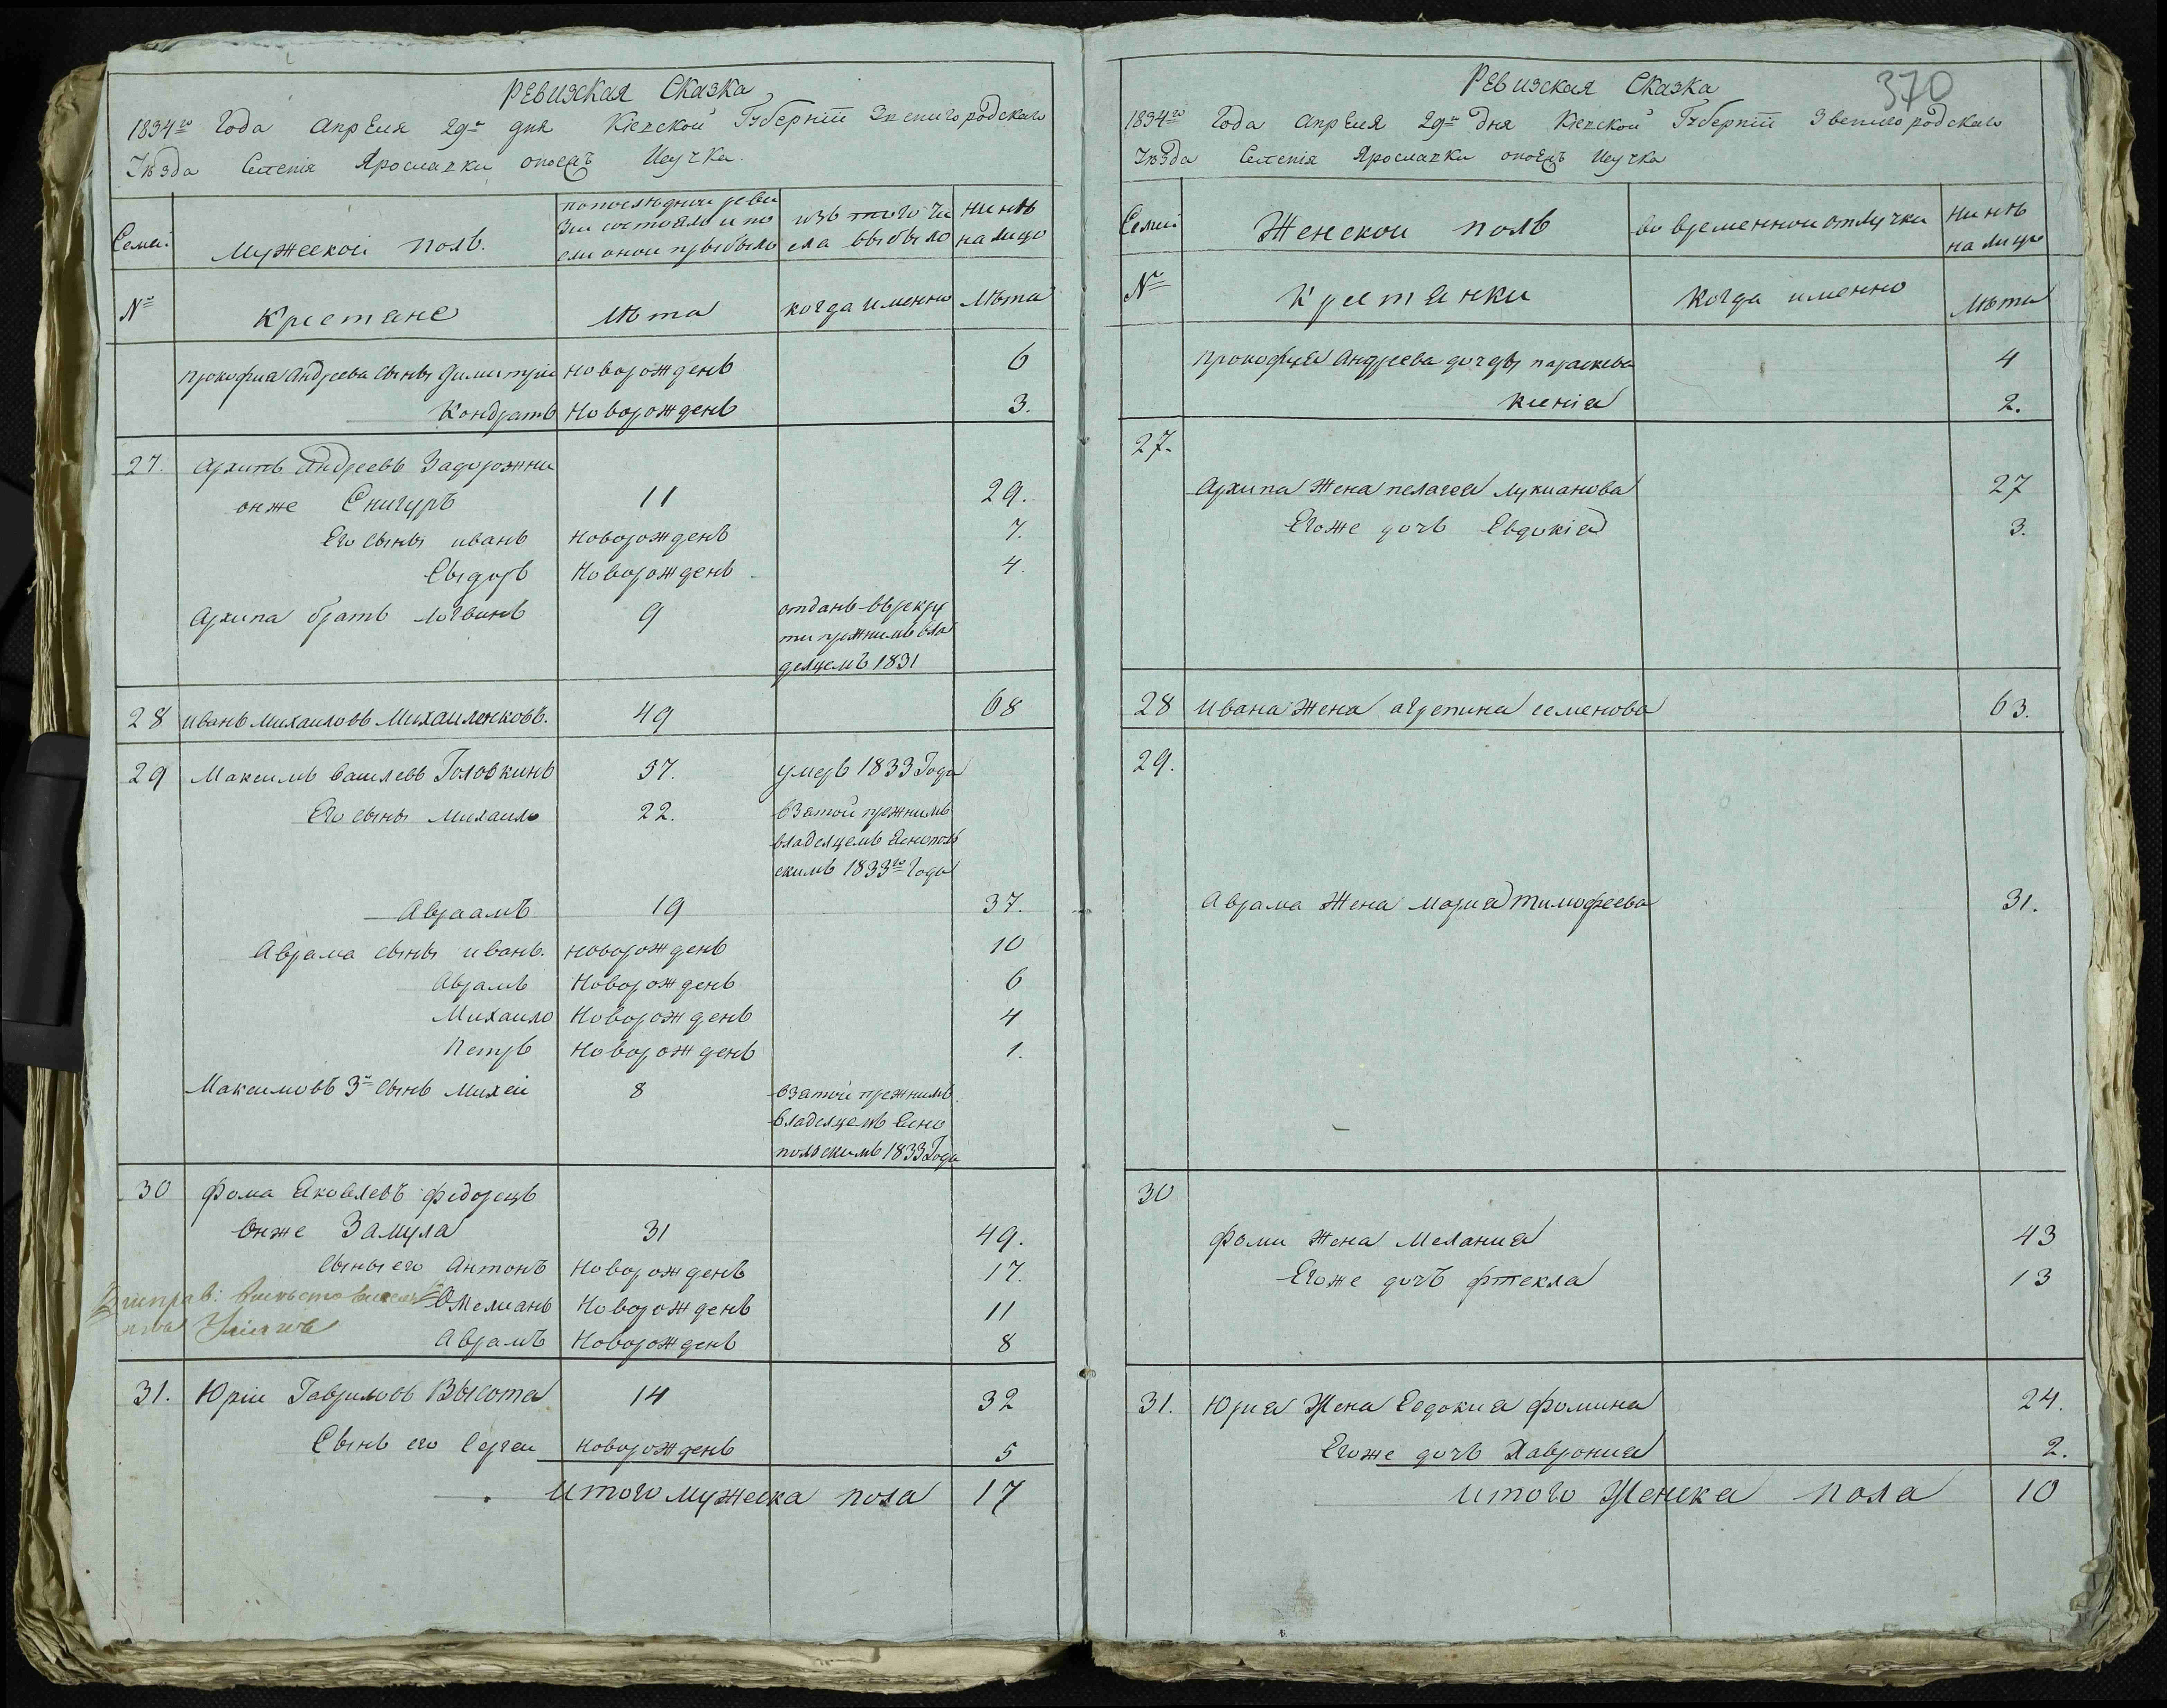 Ревизская Сказка
1834го Года Апреля 29го дня Киевской Губернии Звенигородского
Уезда Селения Ярославки
Семей
Мужеской полъ.
по последней реви
зии состояло и по
сле оной прыбыло
изъ того чи
сла выбыло
Ныне
на лицо
№
Крестяне
Лета
когда именно
Лета
Прокофия Андреева сыны Димитрий новорожденъ 6
Кондратъ Новорожденъ 3.
27. Архипъ Андреевъ Задорожни
онже Снигуръ 11 29.
Его сыны иванъ новорожденъ 7.
Сыдоръ Новорожденъ 4.
Архипа братъ логвинъ 9 отданъ в рекру
ти прежнимъ вла
делцемъ 1831
28 иванъ михаиловъ Михаиленковъ. 49 68
29 Максимъ василевъ Головкинъ 37. умеръ 1833 Года
Его сыны михаило 22. взятой прежнимъ
владелцемъ Яснополь
скимъ 1833го Года
Авраамъ 19 37.
Аврама сыны иванъ. новорожденъ 10
Аврамъ Новорожденъ 6
Михаило Новорожденъ 4
Петръ Новорожденъ 1.
Максимовъ 3й сынъ михей 8 взятой прежнимъ
владелцемъ Ясно
польскимъ 1833 Года
30 Фома Яковлевъ Федорецъ
Онже Замула 31 49.
сыны его Антонъ Новорожденъ 17.
Омелианъ Новорожденъ 11
Аврамъ Новорожденъ 8
31. Юрий Гавриловъ Высота 14 32
Сынъ его Сергей новорожденъ 5
итого мужеска пола 17
370
Ревизская Сказка
1834го Года Апреля 29го дня Киевской Губернии Звенигородского
Уезда Селения Ярославки
Семей
Женской полъ
во временной отлучки
Ныне
на лицо
№
Крестянки
Когда именно
Лета
Прокофия Андреева дочеры параскева 4
ксения 2.
27.
Архипа Жена пелагея лукианова 27
Егоже дочъ Евдокия 3.
28 Ивана Жена агрепина семенова 63.
29.
Аврама Жена Мария тимофеева 31.
30
Фоми Жена Мелания 43
Егоже дочъ фтекла 13
31. Юрия Жена Евдокия фомина 24.
Егоже дочъ Хаврония 2.
итого Женска пола 10